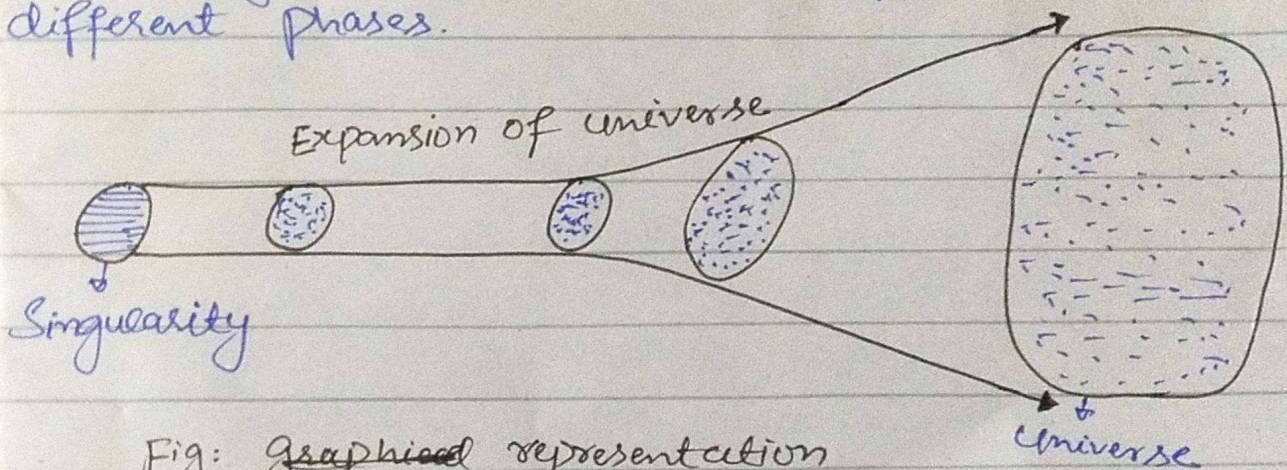 different phases.
Expansion of universe
Singularity
Universe
Fig: graphical representation